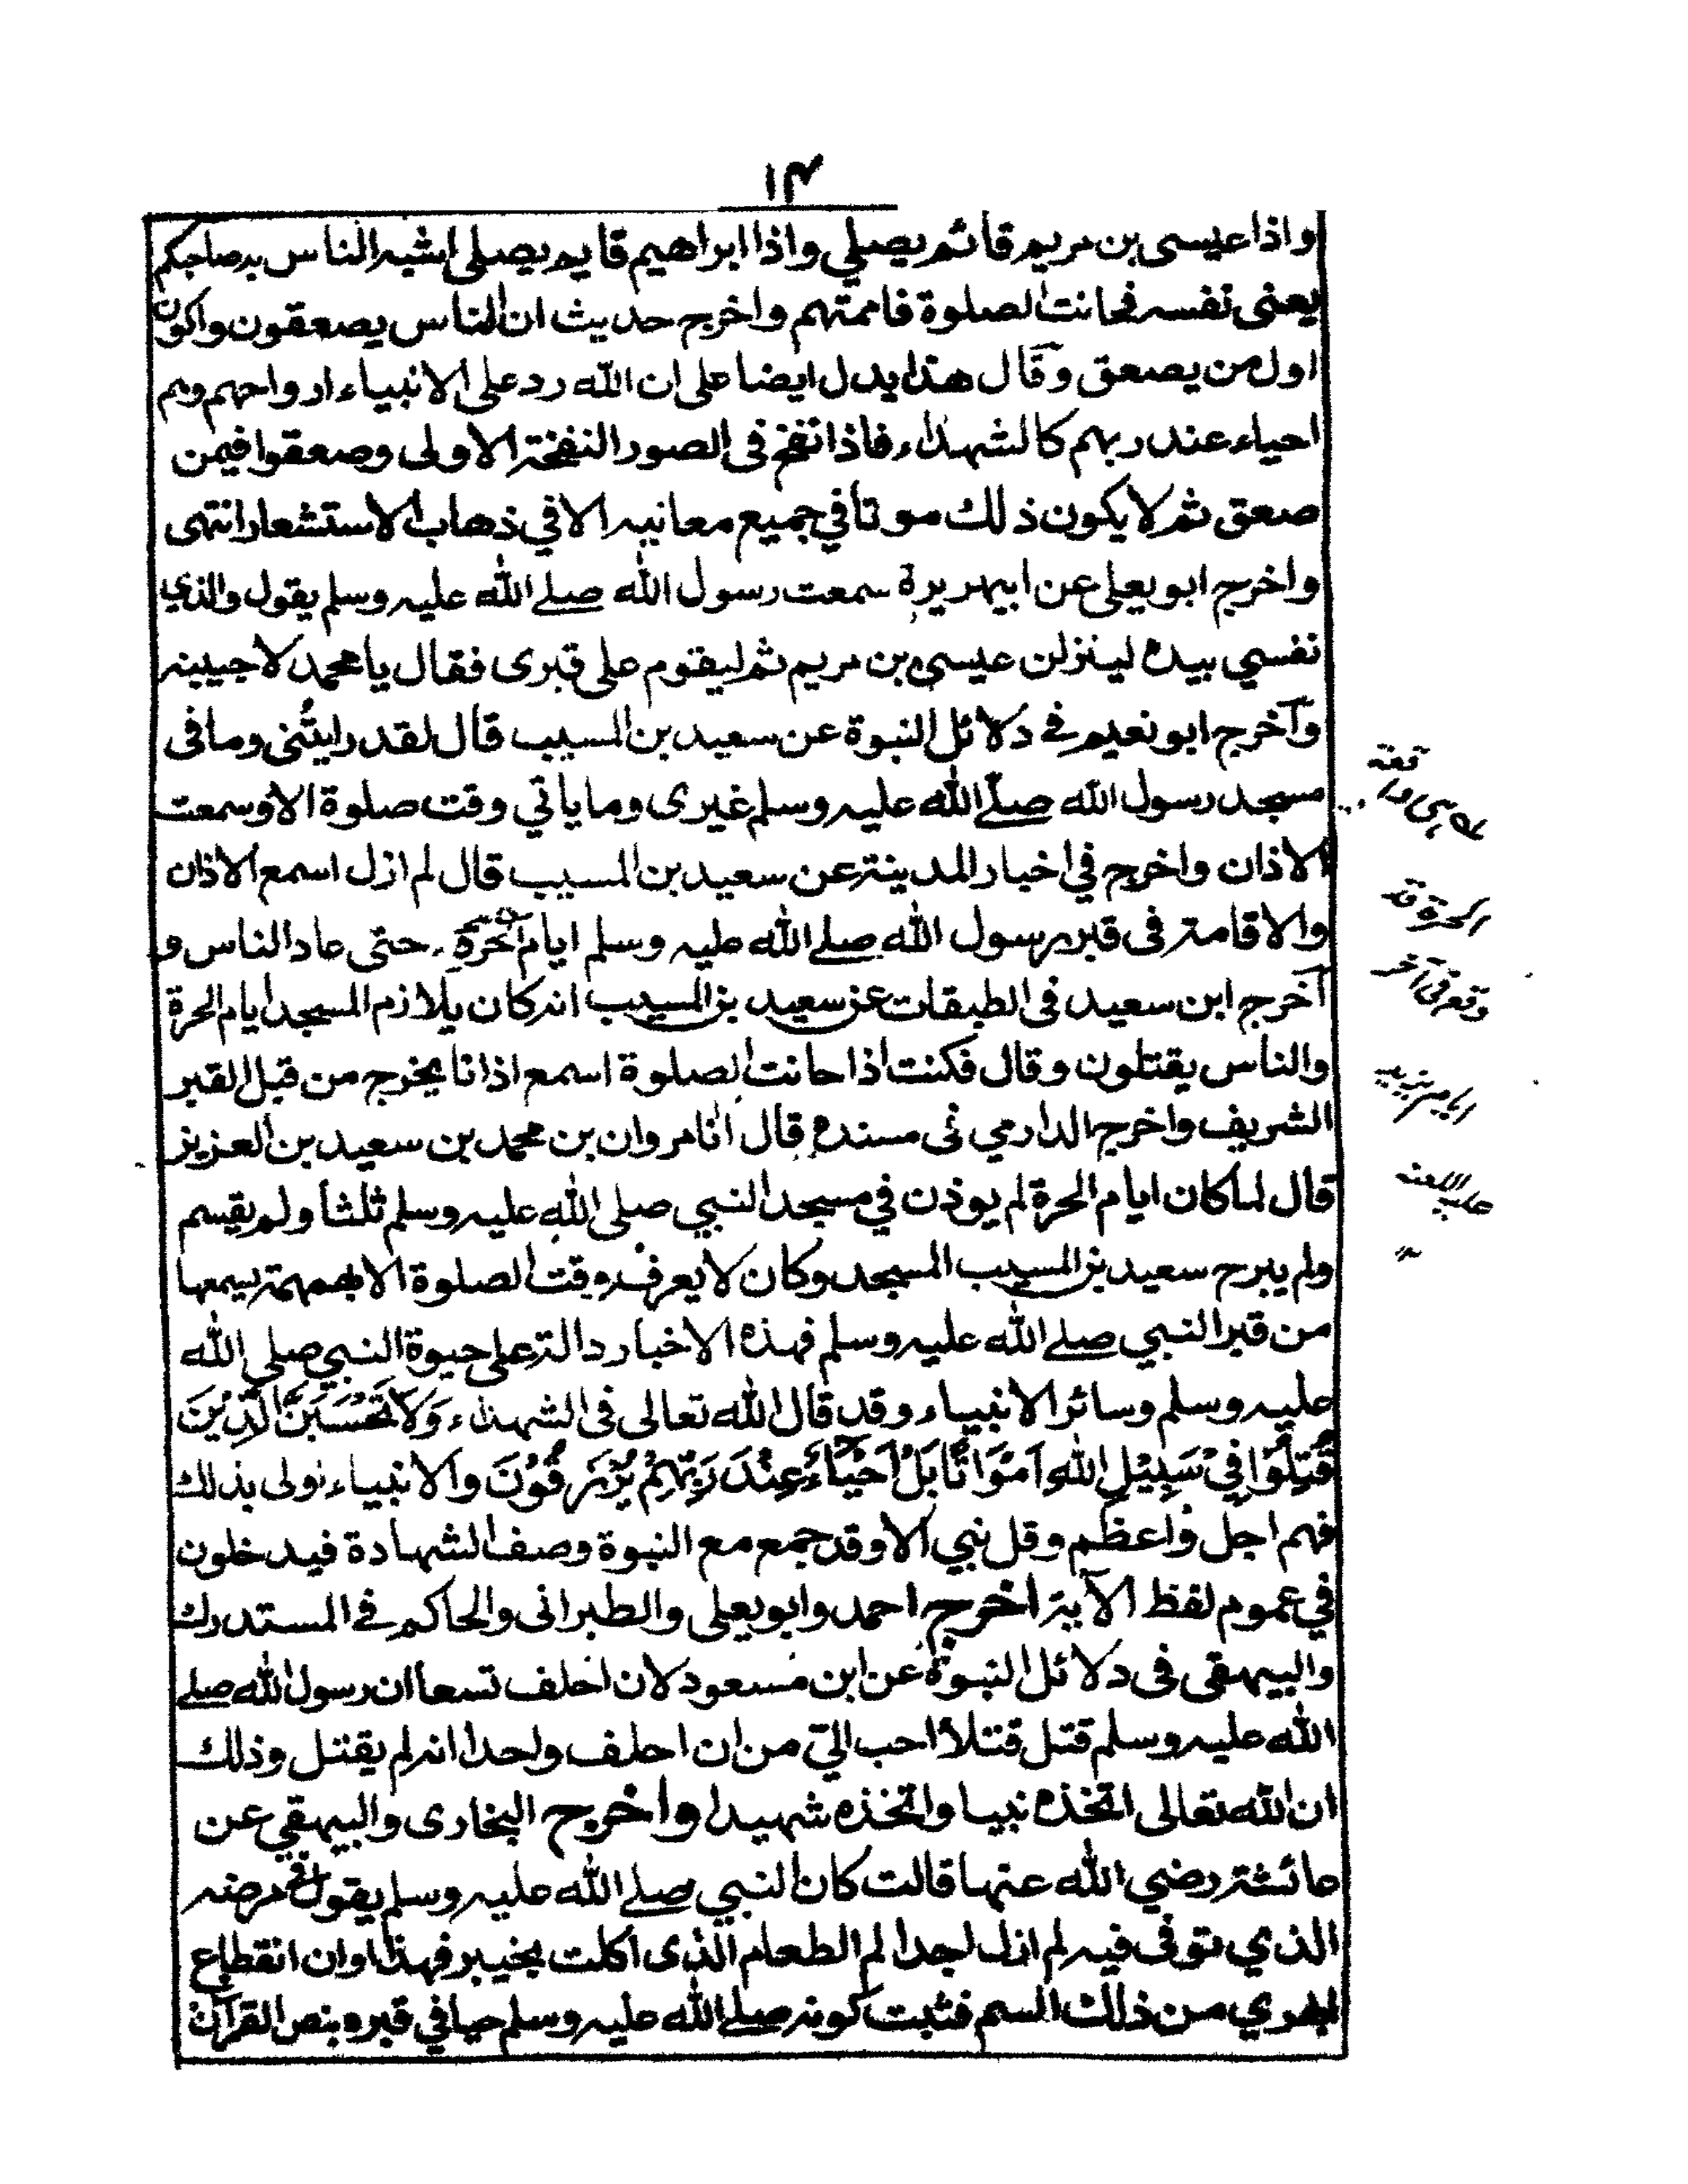 ١٣
واذا عيسى بن مريم قائم يصلي واذا ابراهيم قايم يصلى اشبه الناس به صاحبكم
يعنى نفسه فحانت الصلوة فاممتهم واخرج حديث ان الناس يصعقون واكون
اول من يصعق وقال هذا يدل ايضا على ان الله رد على الانبياء ارواحهم وهم
احياء عند ربهم كالشهداء فاذا نفخ فى الصور النفخة الاولى وصعقوا فيمن
صعق ثم لا يكون ذلك موتا في جميع معانيه الا في ذهاب الاستشعار انتهى
واخرج ابو يعلى عن ابيهريرة سمعت رسول الله صلے الله عليه وسلم يقول والذي
نفسي بيده لينزلن عيسى بن مريم ثم ليقوم على قبرى فقال يا محمد لاجيبنه
وآخرج ابو نعيم فے دلائل النبوة عن سعيد بن المسيب قال لقد رايتُنى وما فى
مسجد رسول الله صلّے الله عليه وسلم غيرى وما ياتي وقت صلوة الا وسمعت
الاذان واخرج في اخبار المدينة عن سعيد بن المسيب قال لم ازل اسمع الاذان
والاقامة فى قبر رسول الله صلے الله عليه وسلم ايام الحرة حتى عاد الناس و
آخرج ابن سعيد فى الطبقات عن سعيد بن المسيب انه كان يلازم المسجد ايام الحرة
والناس يقتلون وقال فكنت اذا حانت الصلوة اسمع اذانا يخرج من قبل القبر
الشريف واخرج الدارمي فى مسنده قال انا مروان بن محمد بن سعيد بن العزيز
قال لما كان ايام الحرة لم يوذن في مسجد النبي صلى الله عليه وسلم ثلثا ولم يقسم
ولم يبرح سعيد بن المسيب المسجد وكان لا يعرف وقت الصلوة الا بهمهمة يسمعها
من قبر النبي صلے الله عليه وسلم فهذه الاخبار دالة على حيوة النبي صلى الله
عليه وسلم وسائر الانبياء وقد قال الله تعالى فى الشهداء وَلَا تَحْسَبَنَّ الَّذِيْنَ
قُتِلُوْا فِيْ سَبِيْلِ اللهِ اَمْوَاتًا بَلْ اَحْيَاءٌ عِنْدَ رَبِّهِمْ يُرْزَقُوْنَ والانبياء اولى بذلك
فهم اجل واعظم وقل نبي الا وقد جمع مع النبوة وصف الشهادة فيدخلون
في عموم لفظ الآية اخرج احمد وابو يعلى والطبرانى والحاكم فے المستدرك
والبيهقى فى دلائل النبوة عن ابن مسعود لان احلف تسعا ان رسول الله صلے
الله عليه وسلم قتل قتلا احب الىّ من ان احلف واحدا انه لم يقتل وذلك
ان الله تعالى اتخذه نبيا واتخذه شهيدا واخرج البخارى والبيهقي عن
عائشة رضي الله عنها قالت كان النبي صلے الله عليه وسلم يقول فى مرضه
الذي توفى فيه لم ازل اجد الم الطعام الذى اكلت بخيبر فهذا اوان انقطاع
ابهري من ذلك السم فثبت كونه صلے الله عليه وسلم حيا في قبره بنص القرآن
الحرة قد
وقعت فى آخر
ايام يزيد
عليه اللعنة